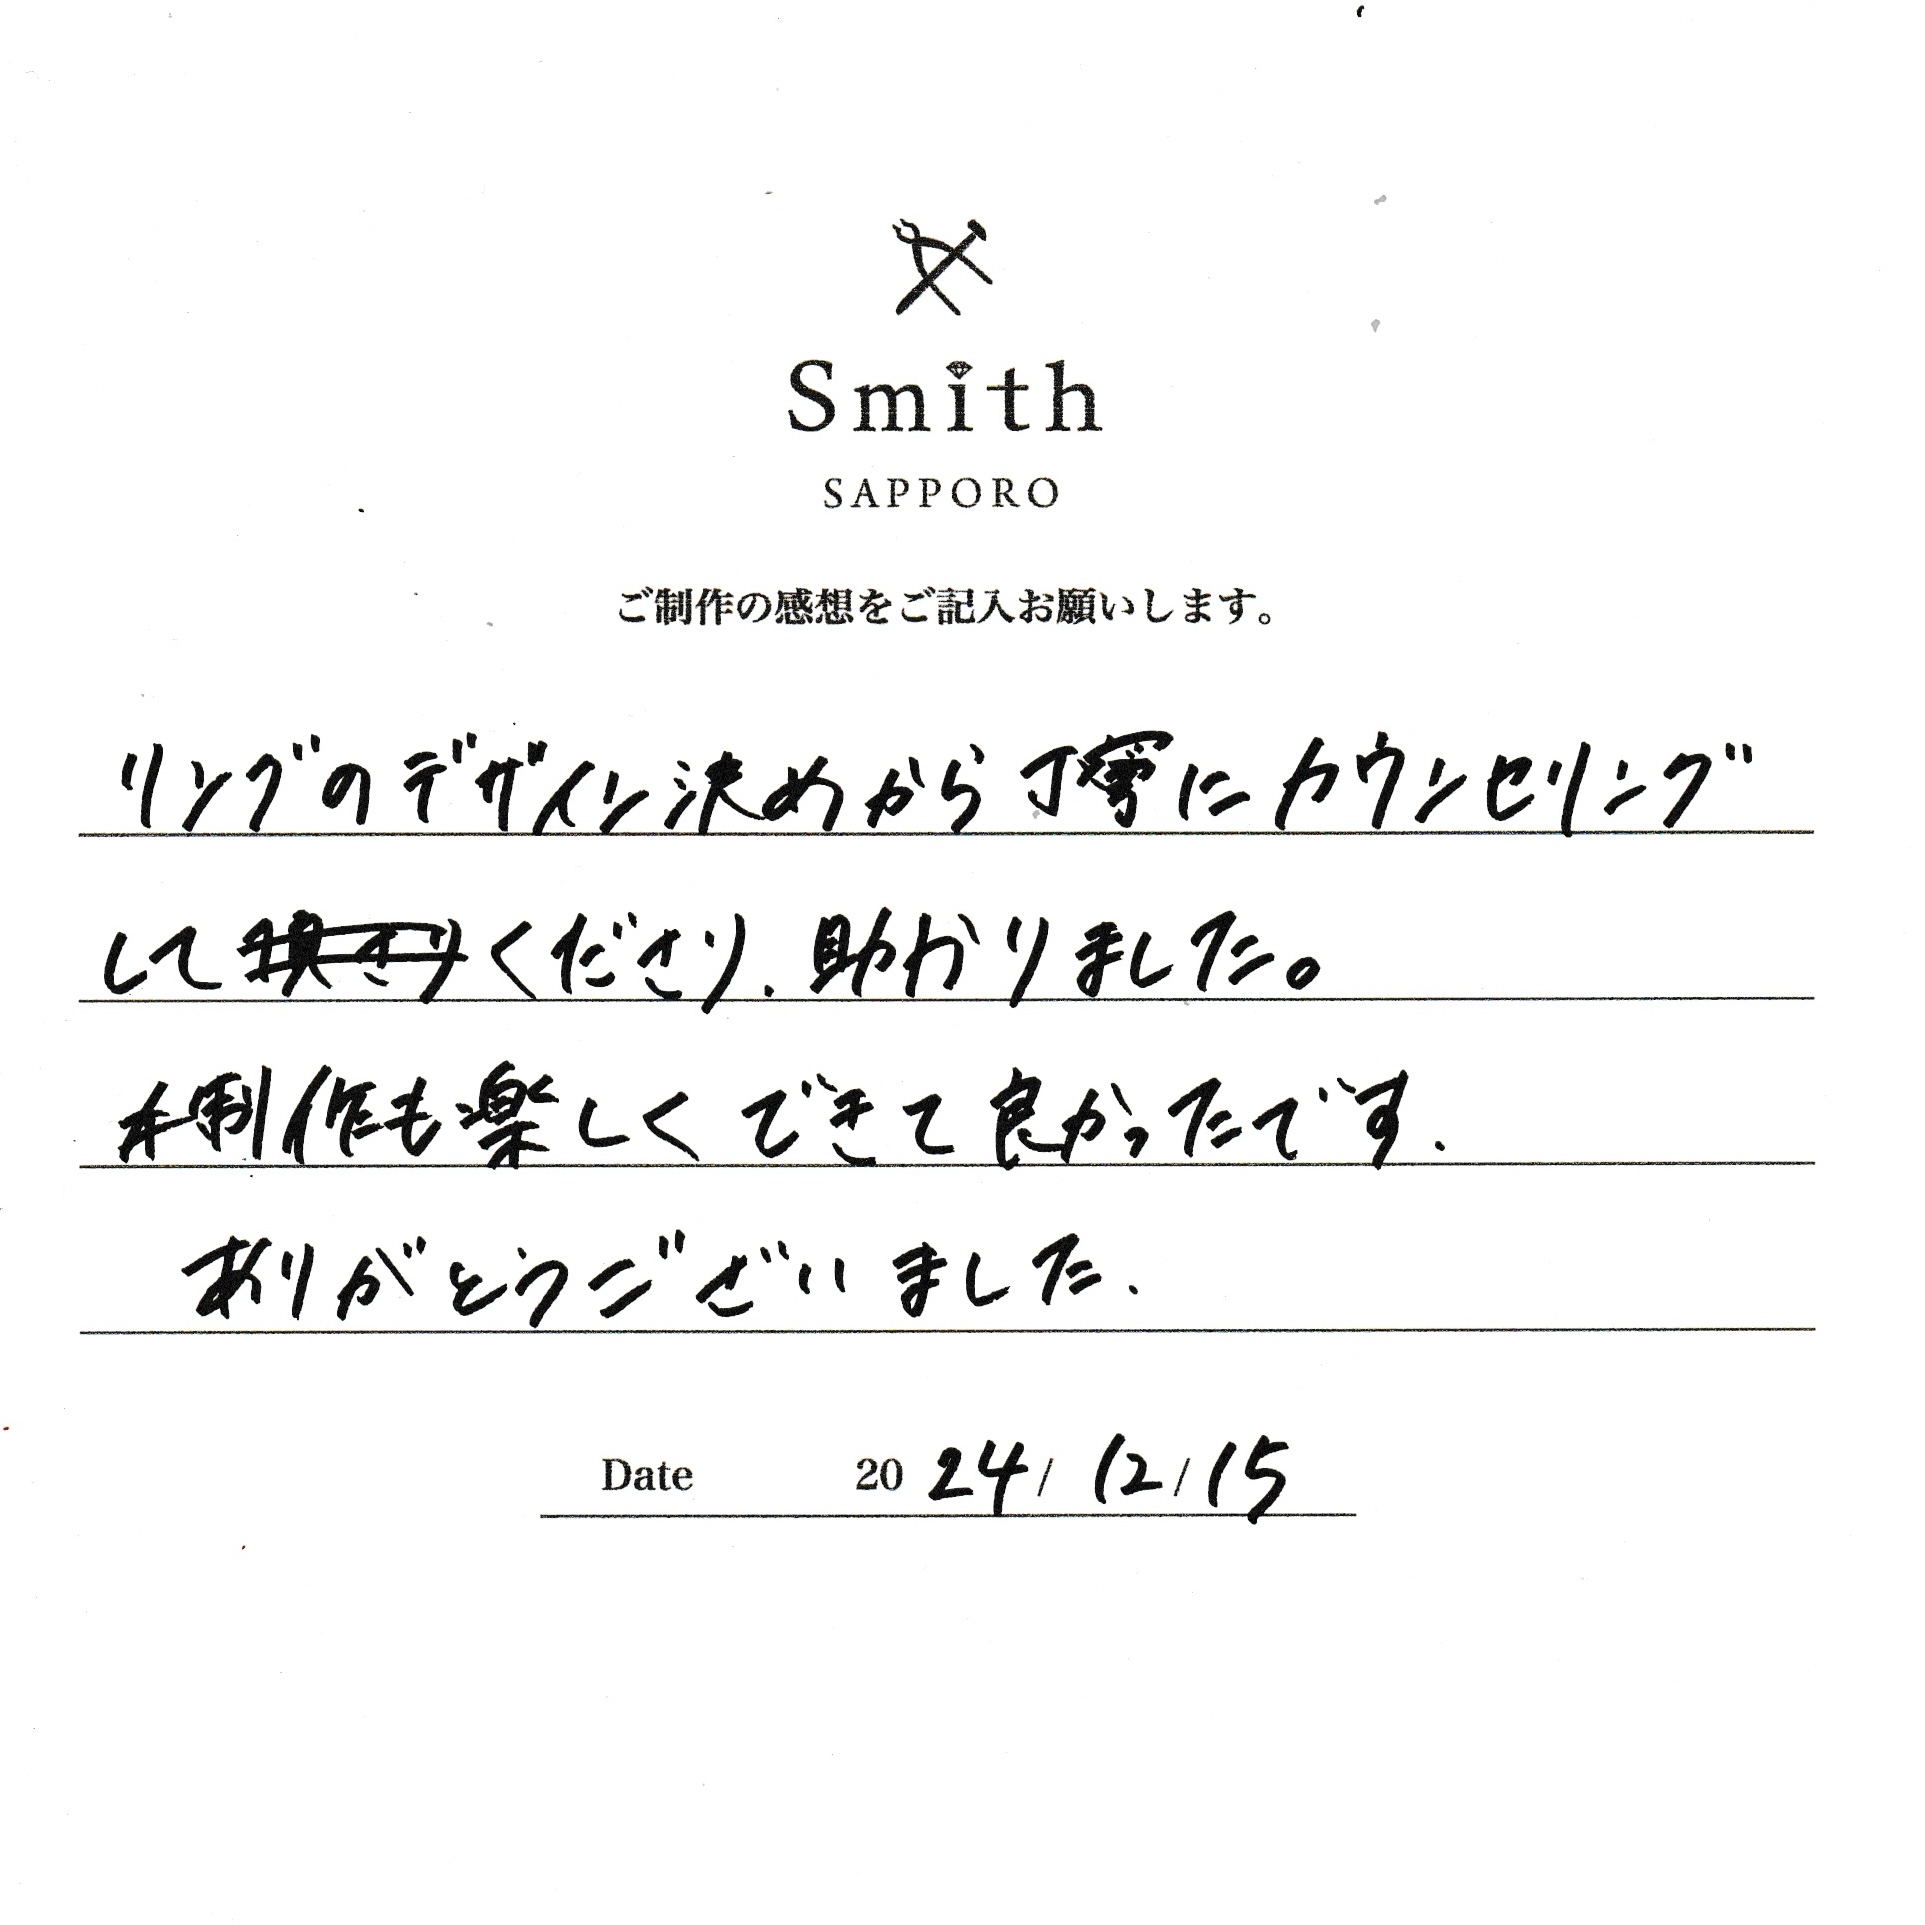 Smith
SAPPORO
ご制作の感想をご記入お願いします。
リングのデザイン決めから丁寧にカウンセリング
してくださり、助かりました。
制作も楽しくできて良かったです.
ありがとうございました.
Date 2024/12/15